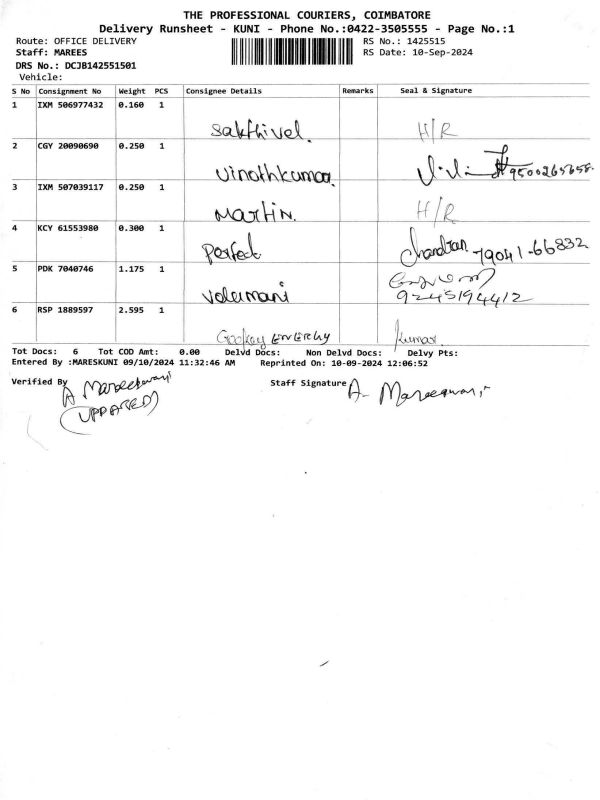 THE PROFESSIONAL COURIERS, COIMBATORE
Delivery Runsheet - KUNI - Phone No.:0422-3505555 - Page No.:1
Route: OFFICE DELIVERY RS No.: 1425515
Staff: MAREES RS Date: 10-Sep-2024
DRS No.: DCJB142551501
Vehicle:
S No Consignment No Weight PCS Consignee Details Remarks Seal & Signature
1 IXM 506977432 0.160 1
Sakthivel. H/R
2 CGY 20090690 0.250 1
Vinothkumar. 9500265658.
3 IXM 507039117 0.250 1
Martin. H/R
4 KCY 61553980 0.300 1
Perfect Chandran 79041-66832
5 PDK 7040746 1.175 1
Velumani 9245194412
6 RSP 1889597 2.595 1
ENERGY Kumar.
Tot Docs: 6 Tot COD Amt: 0.00 Delvd Docs: Non Delvd Docs: Delvy Pts:
Entered By :MARESKUNI 09/10/2024 11:32:46 AM Reprinted On: 10-09-2024 12:06:52
Verified By A Mareeswari Staff Signature A- Mareeswari
(UPDATED)